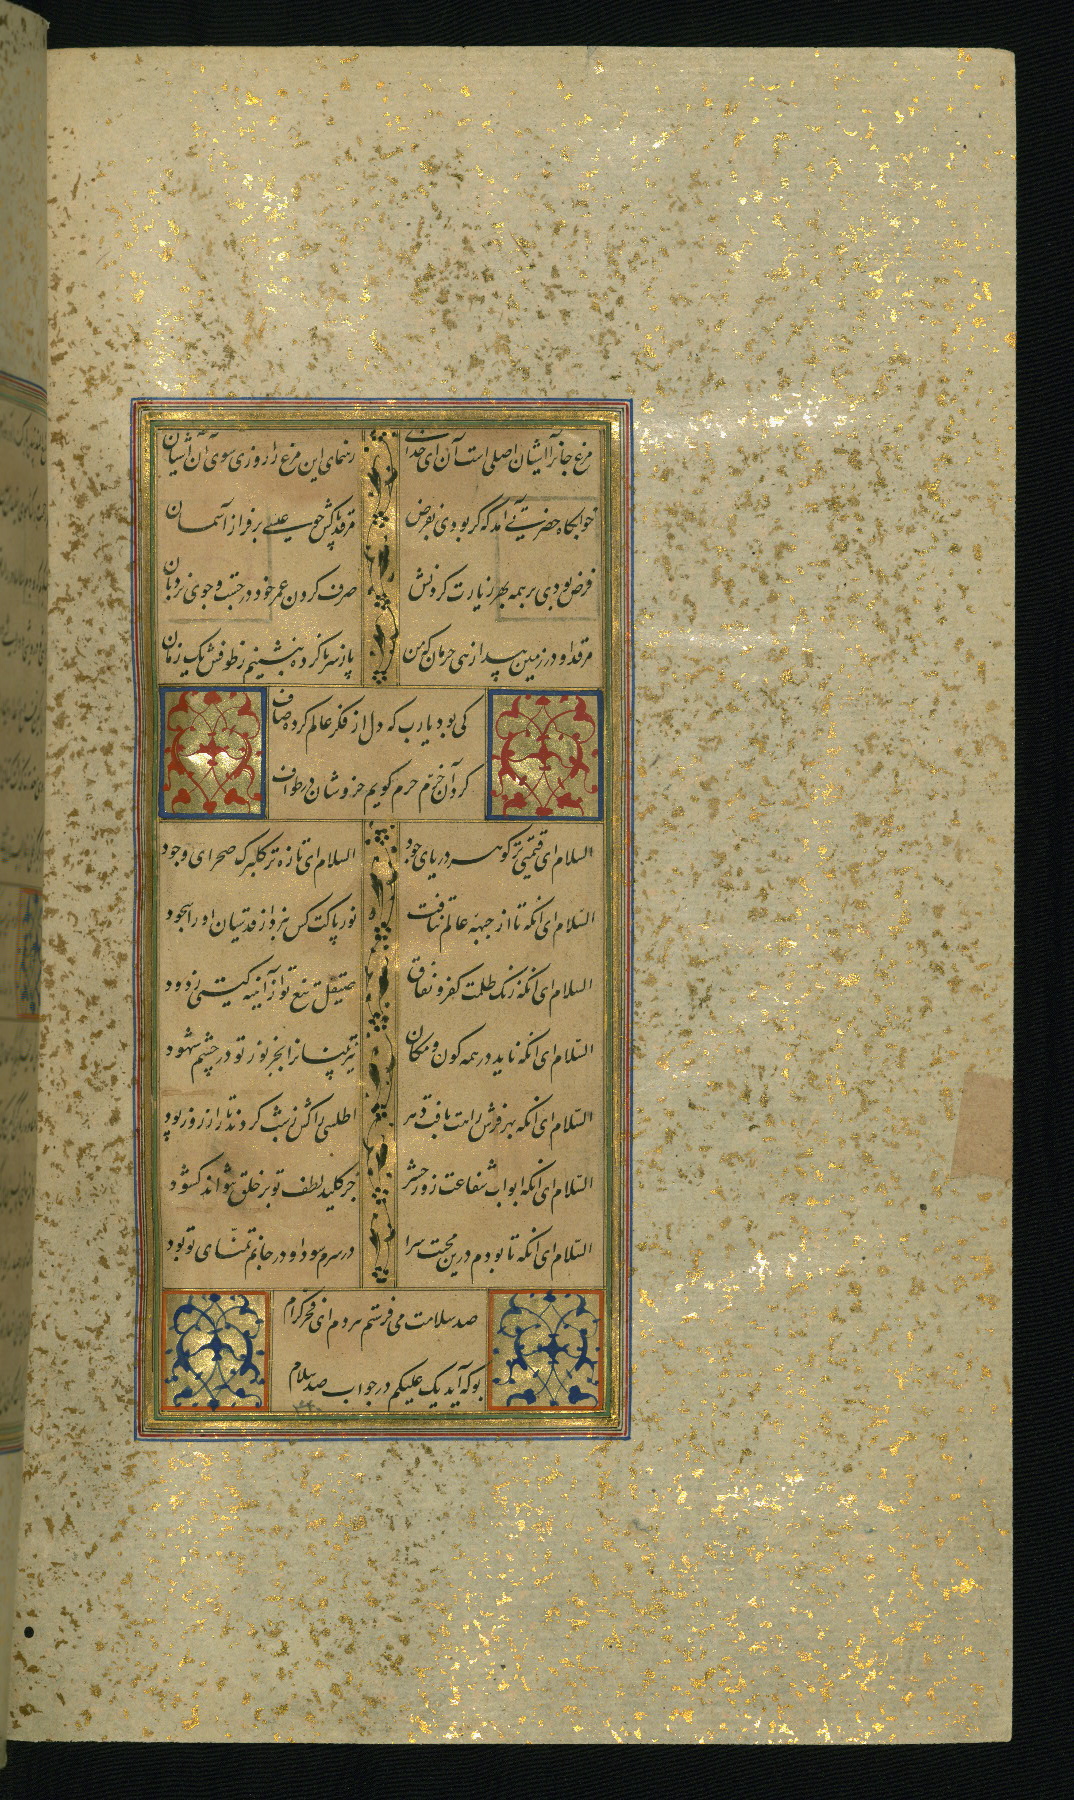 مرغ جانرا آشیان اصلی است آن ای خدا رهنمای این مرغ را روزی سوی آن آشیان
خوابگاه حضرتی آمد که گر بودی بفرض مرقد پاکش چو عیسی بر فراز آسمان
فرض بودی بر همه بهر زیارت کردنش صرف کردن عمر خود در جست و جوی نردبان
مرقد او در زمین پیدا زهی حرمان که من پا ز سر ناکرده بنشینم ز طوفش یک زمان
کی بود یارب که دل از فکر عالم کرده صاف
گرد آن خرّم حرم گویم خروشان در طواف
السلام ای قیمتی تر گوهر دریای جود السلام ای تازه تر گلبرگ صحرای وجود
السّلام ای انکه تا از جبهه عالم نتافت نور پاکت کس نبرد از قدسیان او را سجود
السلام ای انکه زنک ظلمت کفر و نفاق صیقل تیغ تو از آئینه گیتی زدود
السّلام ای انکه ناید در همه کون و مکان تیزبینانرا بجز نور تو در چشم شهود
السّلام ای انکه بهر فرش راهت بافت دهر اطلسی را کش ز شب کردند تار از روز پود
السّلام ای انکه ابواب شفاعت روز حشر جز کلید لطف تو بر خلق نتواند کشود
السّلام ای انکه تا بودم درین محنت سرا در سرم سودا و در جانم تمنّای تو بود
صد سلامت می فرستم هر دم ای فخر کرام
بو که آید یک علیکم در جواب صد سلام